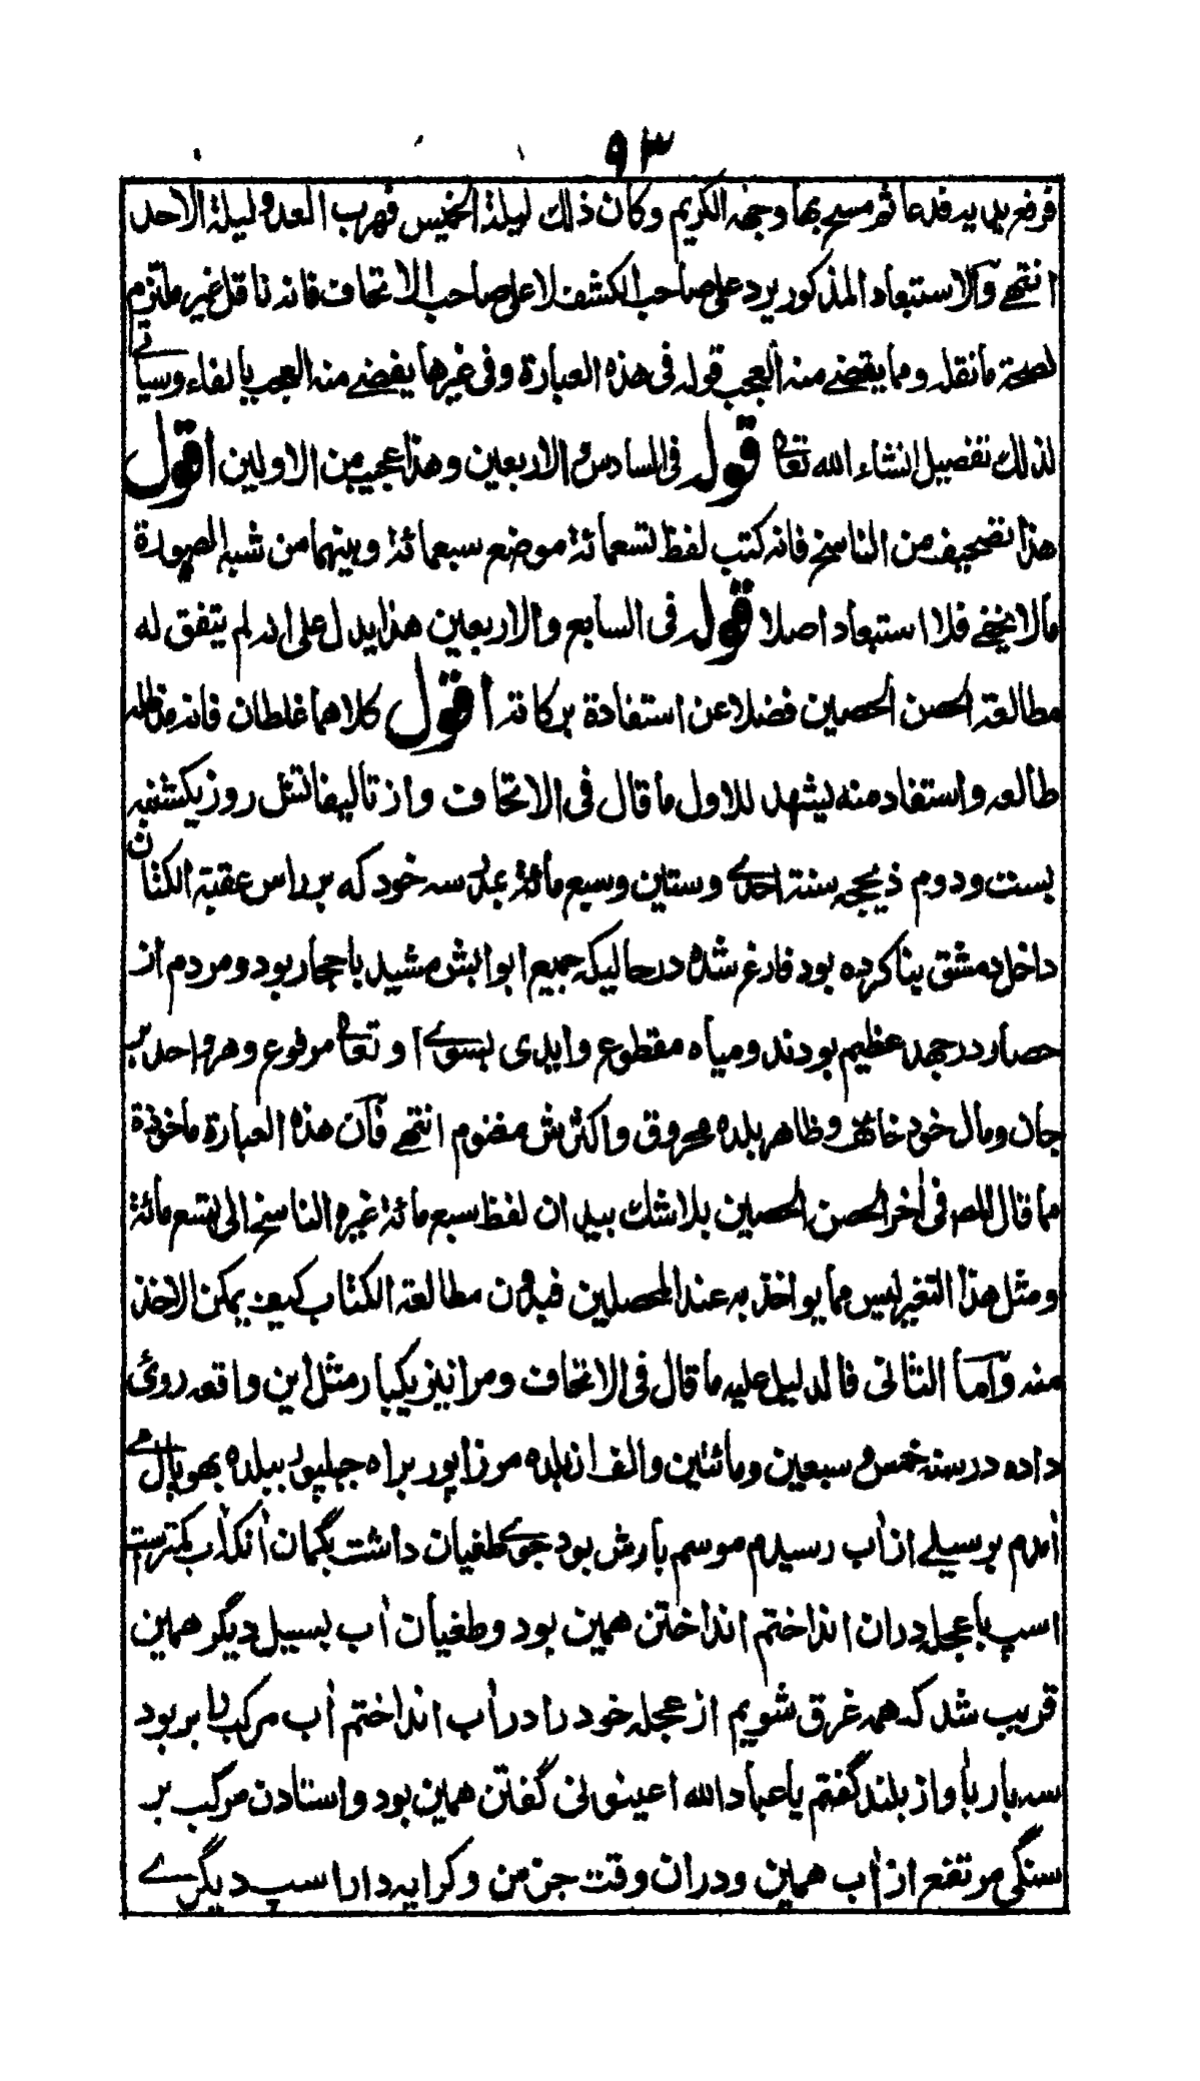 ٩٣
فرفع يديه فدعا ثم مسح بها وجهه الكريم وكان ذلك ليلة الخميس فهرب العدو ليلة الاحد
انتهے والاستبعاد المذكور يرد على صاحب الكشف لا على صاحب الاتحاف فانه ناقل غير ملتزم
لصحة ما نقله ومما يقضے منه العجب قوله فى هذه العبارة وفى غيرها يفضے منه العجب بالفاء وسياتے
لذلك تفصيل انشاء الله تعالى قوله فى السادس والاربعين وهذا عجيب من الاولين اقول
هذا تصحيف من الناسخ فانه كتب لفظ تسعمائة موضع سبعمائة وبينهما من شبه الصورة
مالا يخفے فلا استبعاد اصلا قوله فى السابع والاربعين هذا يدل على انه لم يتفق له
مطالعة الحصن الحصين فضلا عن استفادة بركاته اقول كلاهما غلطان فانه مد ظله
طالعه واستفاد منه يشهد للاول ما قال فى الاتحاف واز تاليفاتش روز يكشنبه
بست ودوم ذيحجه سنة احدے وستين وسبع مائة بمدرسه خود كه برراس عقبة الكتان
داخل دمشق بنا كرده بود فارغ شده درحاليكه جميع ابوابش مشيد باحجار بود ومردم از
حصار درجهد عظيم بودند ومياه مقطوع وايدى بسوے او تعالى مرفوع وهر واحد بر
جان ومال خود خائف وظاهر بلده محروق واكثرش منهوم انتهے فان هذه العبارة ماخوذة
مما قال المص فى اٰخر الحصن الحصين بلاشك بيد ان لفظ سبع مائة غيره الناسخ الى تسع مائة
ومثل هذا التغير ليس مما يواخذ به عند المحصلين فبدون مطالعة الكتاب كيف يمكن الاخذ
منه واما الثانى فالدليل عليه ما قال فى الاتحاف ومرا نيز يكبار مثل اين واقعه روى
داده درسنه خمس وسبعين ومائتين والف از بلده مرزاپور براه جبلپور ببلده بهوپال مے
اٰمدم بر سيلے از اٰب رسيدم موسم بارش بود جوے طغيان داشت بگمان اٰنكه اٰب كمترست
اسپ با عجله دران انداختم انداختن همين بود وطغيان اٰب بسيل ديگر همين
قريب شد كه همه غرق شويم از عجله خود را در اٰب انداختم اٰب مركب را بر بود
سه بار باٰواز بلند گفتم يا عباد الله اعينونى گفتن همين بود واستادن مركب بر
سنگى مرتفع از اٰب همين ودران وقت جز من وكرايه دار اسپ ديگرے